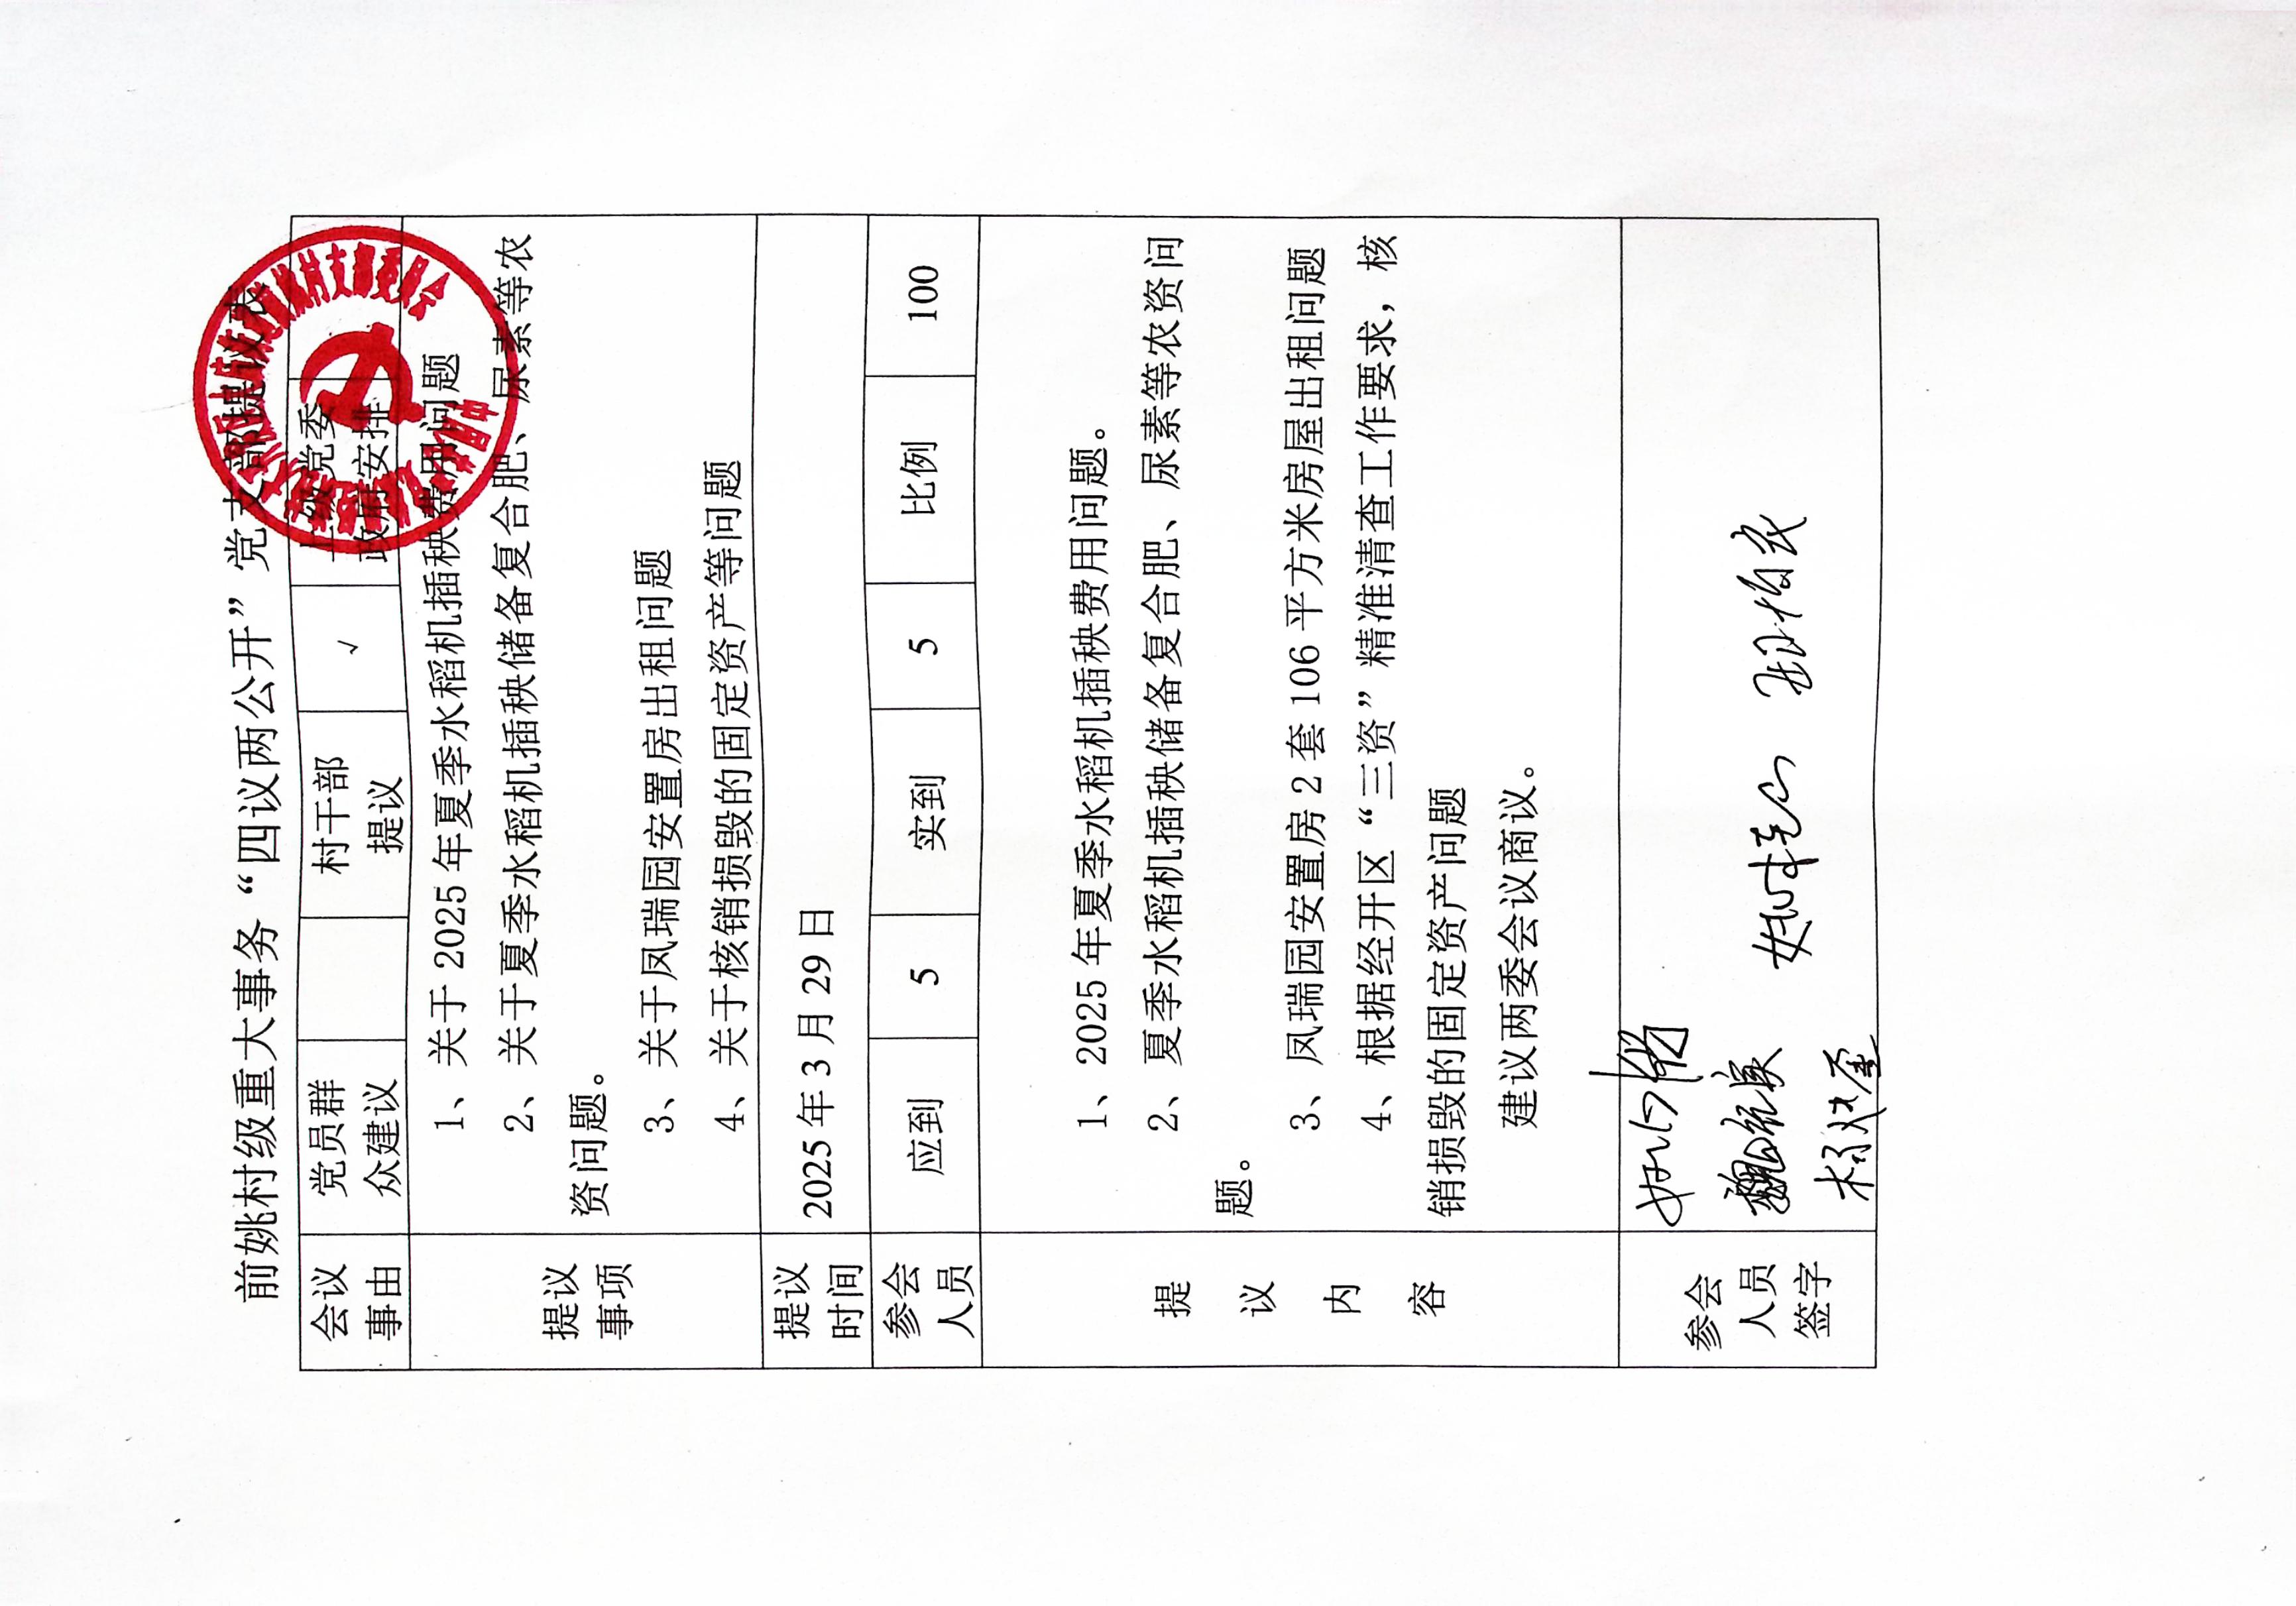 前姚村级重大事务“四议两公开”党支部提议表
会议
事由
党员群
众建议
村干部
提议
√
上级党委
政府安排
提议
事项
1、关于 2025 年夏季水稻机插秧费用问题
2、关于夏季水稻机插秧储备复合肥、尿素等农
资问题。
3、关于凤瑞园安置房出租问题
4、关于核销损毁的固定资产等问题
提议
时间
2025 年 3 月 29 日
参会
人员
应到
5
实到
5
比例
100
提
议
内
容
1、2025 年夏季水稻机插秧费用问题。
2、夏季水稻机插秧储备复合肥、尿素等农资问
题。
3、凤瑞园安置房 2 套 106 平方米房屋出租问题
4、根据经开区“三资”精准清查工作要求，核
销损毁的固定资产问题
建议两委会议商议。
参会
人员
签字